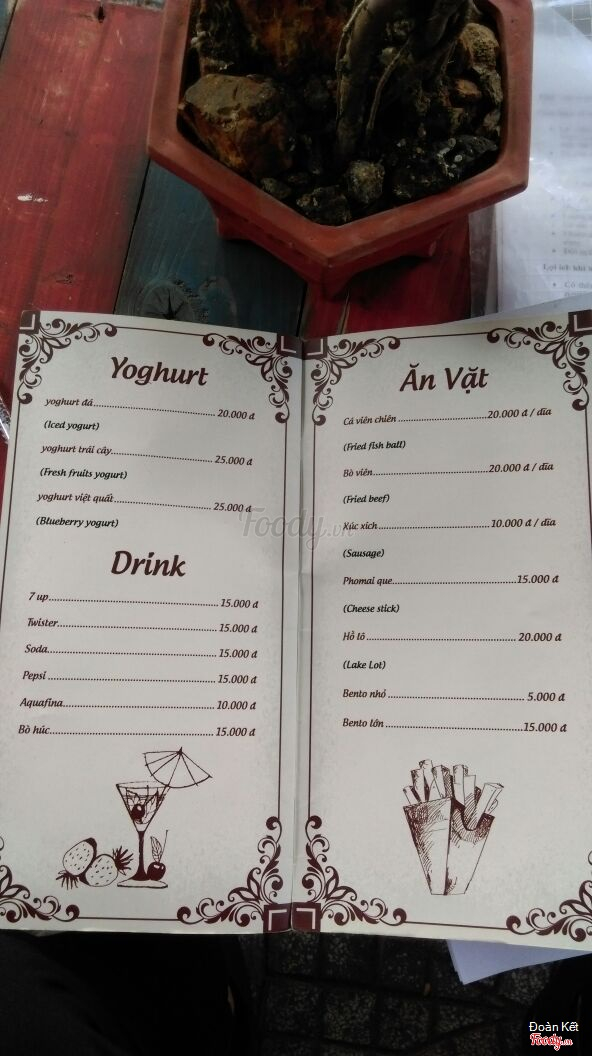 Yoghurt
yoghurt đá 20.000 đ
(Iced yogurt)
yoghurt trái cây 25.000 đ
(Fresh fruits yogurt)
yoghurt việt quất 25.000 đ
(Blueberry yogurt)
Drink
7 up 15.000 đ
Twister 15.000 đ
Soda 15.000 đ
Pepsi 15.000 đ
Aquafina 10.000 đ
Bò húc 15.000 đ
Ăn Vặt
Cá viên chiên 20.000 đ / dĩa
(Fried fish ball)
Bò viên 20.000 đ / dĩa
(Fried beef)
Xúc xích 10.000 đ / dĩa
(Sausage)
Phomai que 15.000 đ
(Cheese stick)
Hồ lô 20.000 đ
(Lake Lot)
Bento nhỏ 5.000 đ
Bento lớn 15.000 đ
Foody.vn
Lợi ích khi
Có thể
Đoàn Kết
Foody.vn